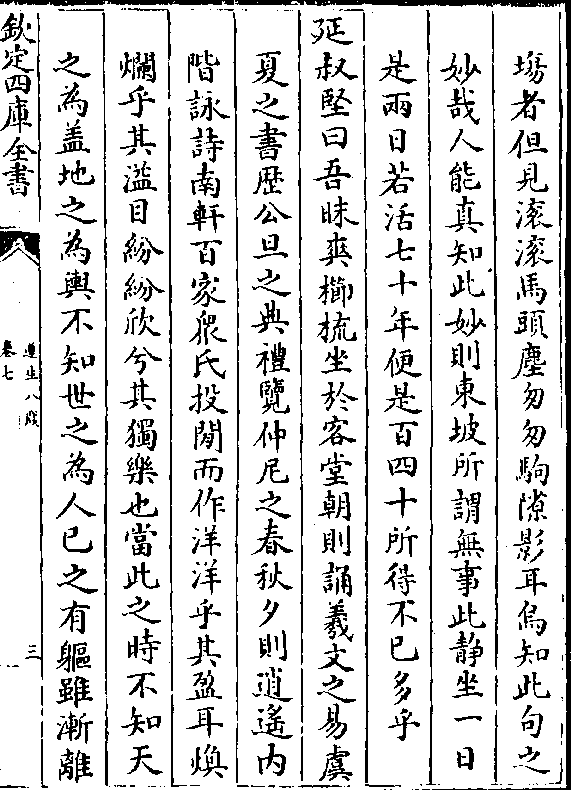 塲者但見滚滚馬頭塵匆匆駒隙影耳烏知此句之
妙哉人能真知此妙則東坡所謂無事此静坐一日
是兩日若活七十年便是百四十所得不已多乎
延叔堅曰吾昧爽櫛梳坐於客堂朝則誦羲文之易虞
夏之書歴公旦之典禮覽仲尼之春秋夕則逍遥内
階詠詩南軒百家衆氏投閒而作洋洋乎其盈耳煥
爛乎其溢目紛紛欣兮其獨樂也當此之時不知天
之為盖地之為輿不知世之為人已之有軀雖漸離
欽定四庫全書
遵生八牋
卷七
三